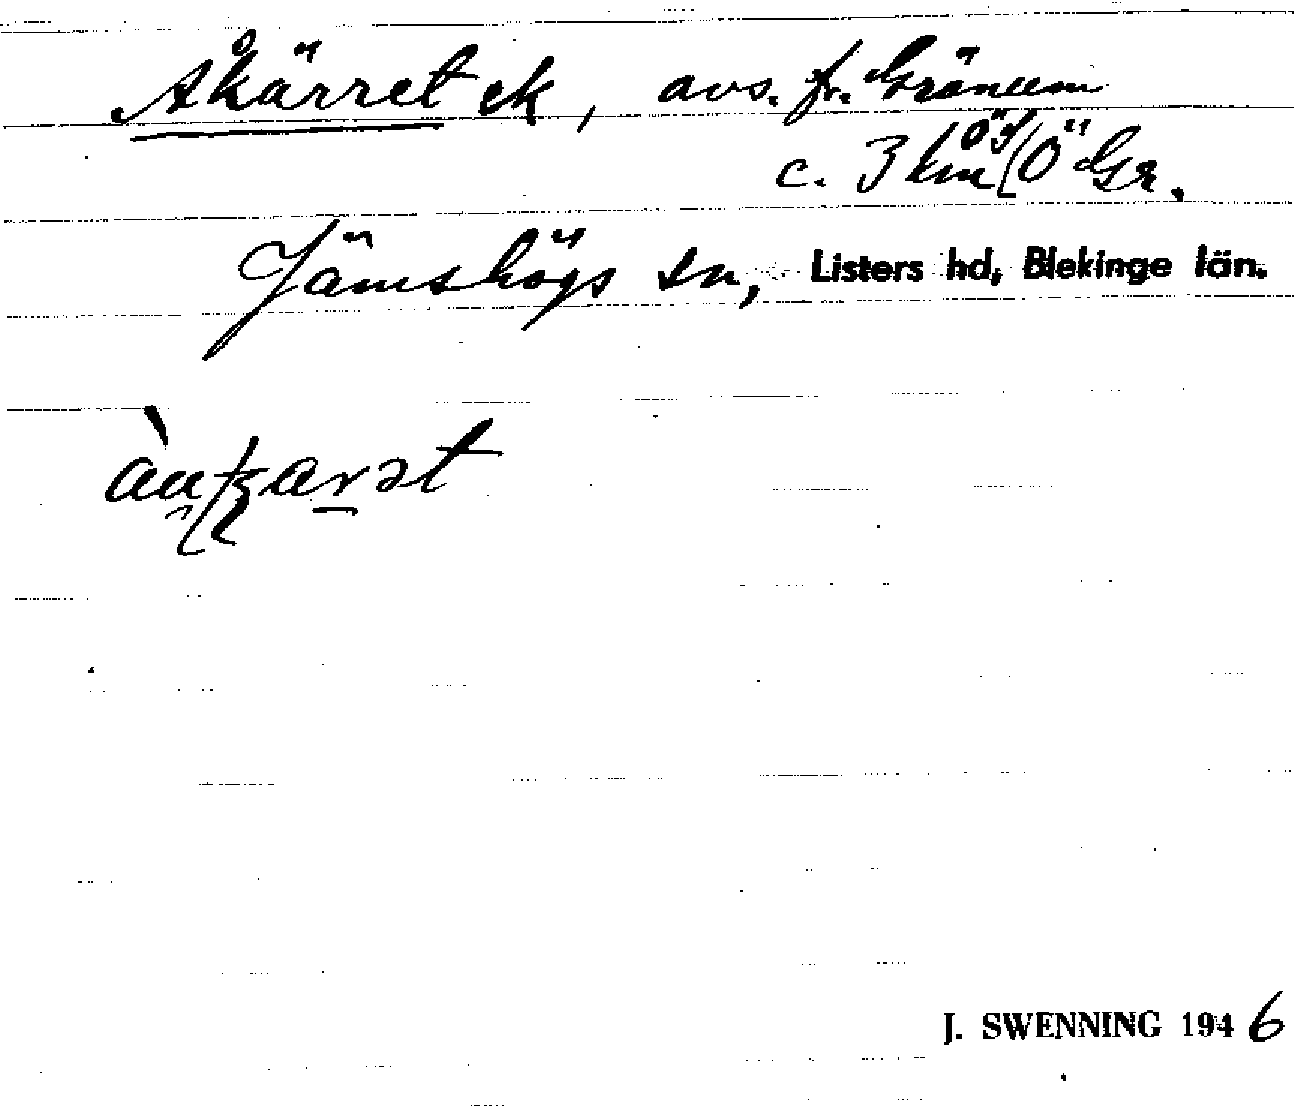 Åkärret ek, avs. fr. Grönum
c. 3 km ÖS Ö Gr.
Jämshögs sn, Listers hd, Blekinge län.
J. SWENNING 1946